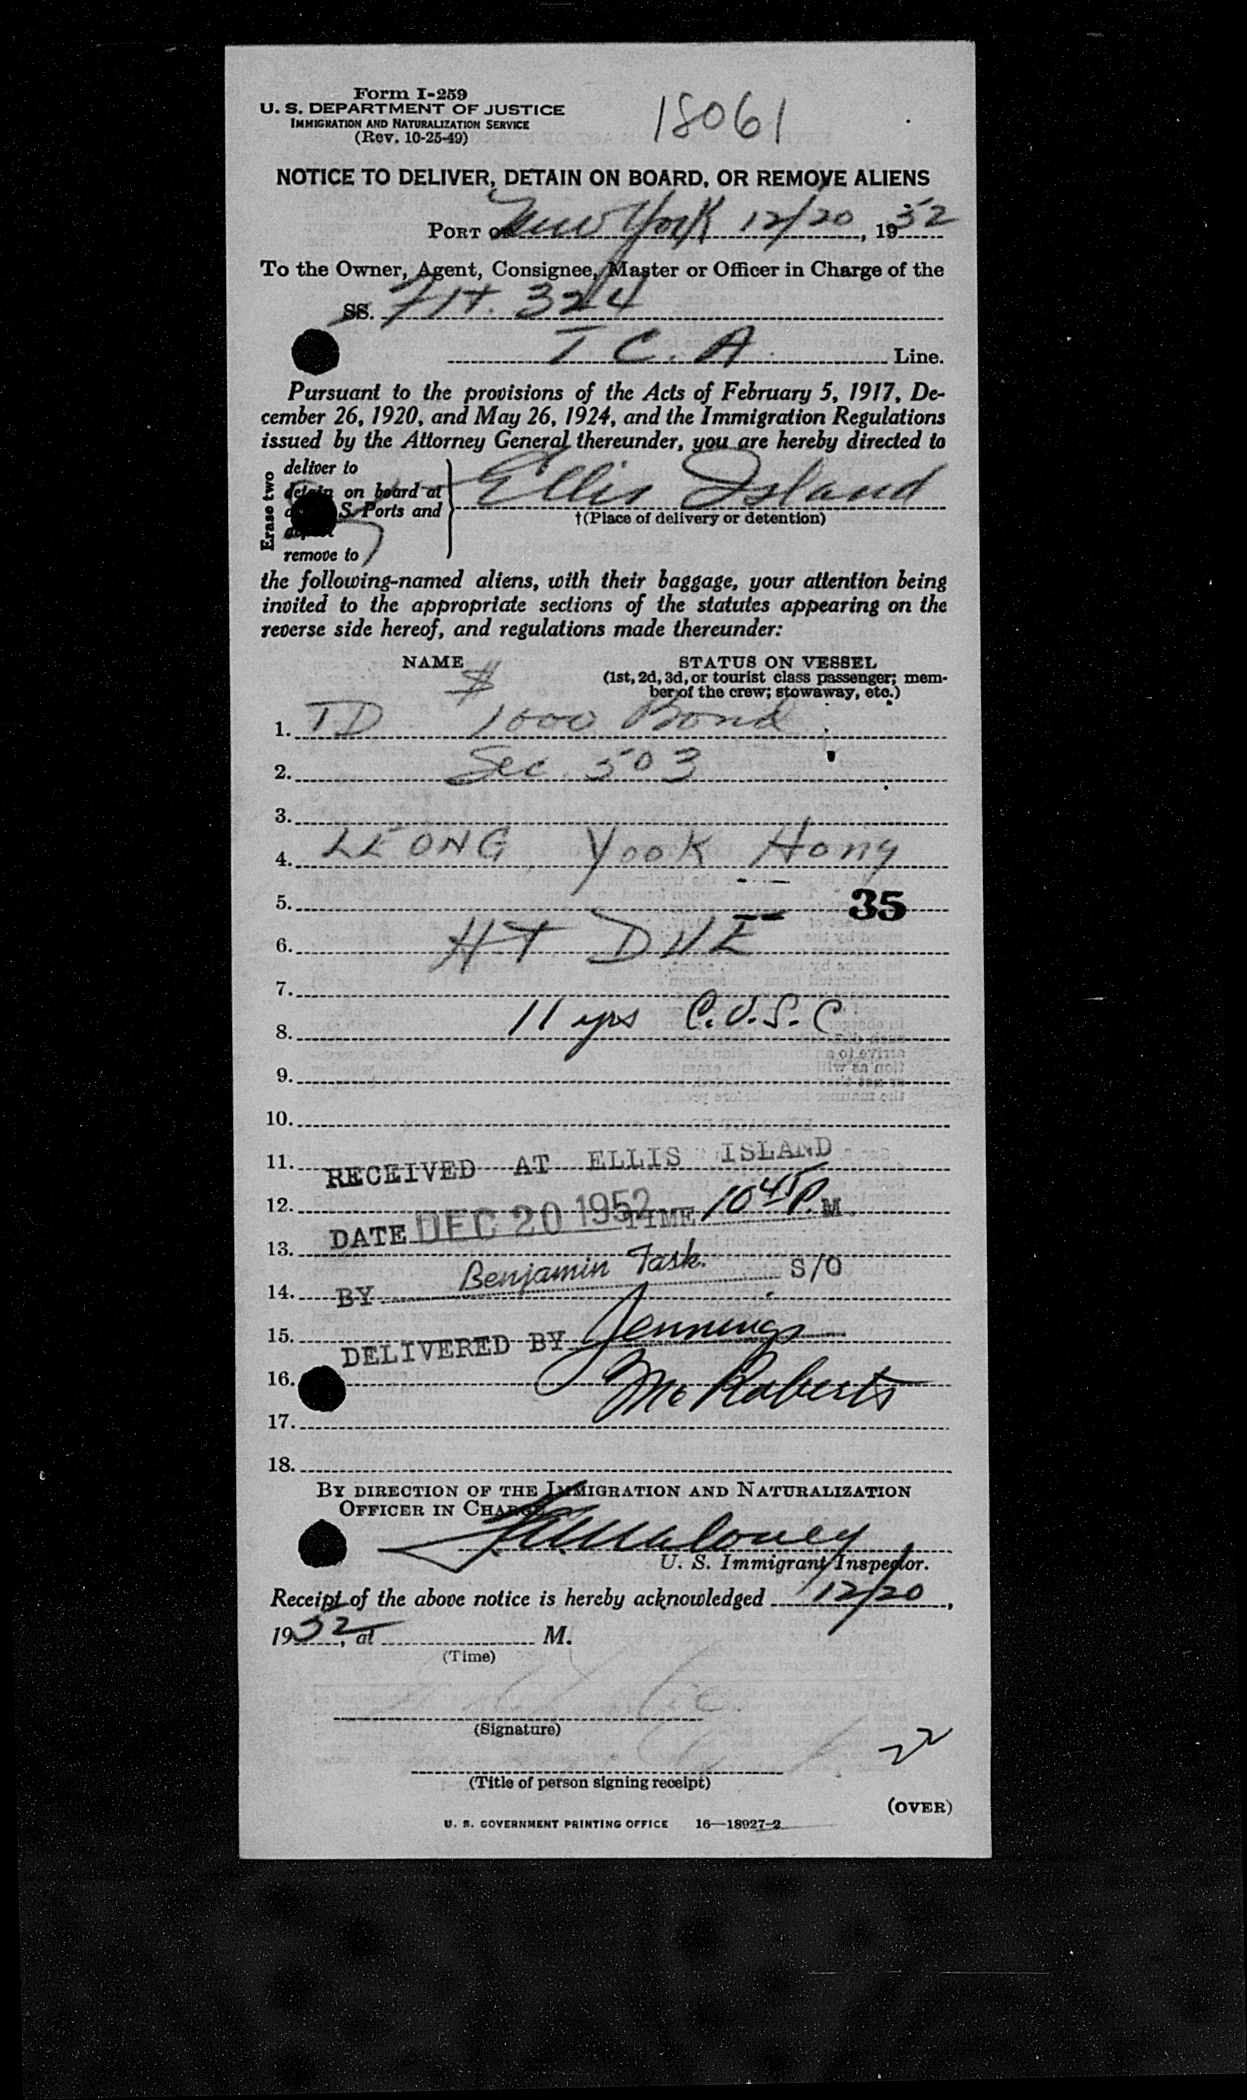 Form I-259
U. S. DEPARTMENT OF JUSTICE
IMMIGRATION AND NATURALIZATION SERVICE
(Rev. 10-25-49)
18061
NOTICE TO DELIVER, DETAIN ON BOARD, OR REMOVE ALIENS
PORT OF New York 12/20, 1952
To the Owner, Agent, Consignee, Master or Officer in Charge of the
SS. Flt. 324
T C. A. Line.
Pursuant to the provisions of the Acts of February 5, 1917, De-
cember 26, 1920, and May 26, 1924, and the Immigration Regulations
issued by the Attorney General thereunder, you are hereby directed to
Erase two
deliver to
detain on board at
S. Ports and
remove to
Ellis Island
†(Place of delivery or detention)
the following-named aliens, with their baggage, your attention being
invited to the appropriate sections of the statutes appearing on the
reverse side hereof, and regulations made thereunder:
NAME STATUS ON VESSEL
(1st, 2d, 3d, or tourist class passenger; mem-
ber of the crew; stowaway, etc.)
$
1. TD 1000 Bond
2. Sec. 503
3.
4. LEONG Yook Hong
5. 35
6. HT DUE
7.
8. 11 yrs C.U.S.C
9.
10.
11. RECEIVED AT ELLIS ISLAND
12. DATE DEC 20 1952 TIME 10 45 P. M.
13.
14. BY Benjamin Task. S/O
15. DELIVERED BY Jennings
16. McRoberts
17.
18.
BY DIRECTION OF THE IMMIGRATION AND NATURALIZATION
OFFICER IN CHARGE
Maloney
U. S. Immigrant Inspector.
Receipt of the above notice is hereby acknowledged 12/20,
1952, at M.
(Time)
(Signature)
22
(Title of person signing receipt)
(OVER)
U. S. GOVERNMENT PRINTING OFFICE 16—18927-2